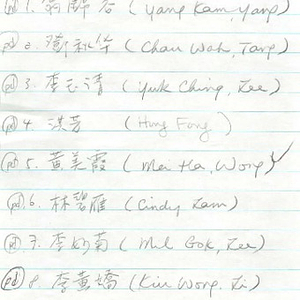 pd 1. (Yang Kam, Yang)
pd 2. 鄧秋华 (Chau Wah, Tang)
pd 3. 李玉清 (Yuk Ching, Lee)
pd 4. 洪芳 (Hung Fong)
pd 5. 黄美霞 (Mei Ha, Wong) ✓
pd 6. 林碧雁 (Cindy Lam)
pd 7. 李妙菊 (Mil Gok, Lee)
pd 8. 李黄嬌 (Kiu Wong, Li)